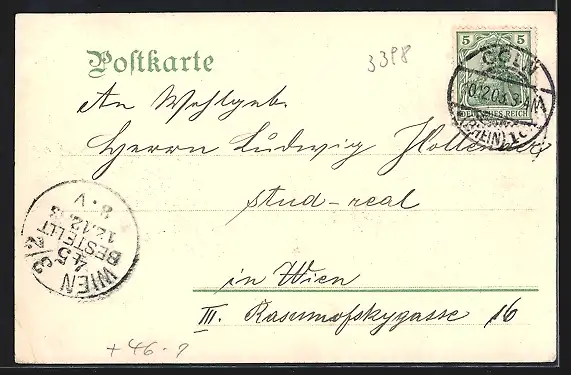 Postkarte
3398
5 5
DEUTSCHES REICH
CÖLN
10.12.03.
(RHEIN) 1.
An Wohlgeb.
Herrn Ludwig Hollender
stud-real
in Wien
III. Rasumofskygasse 16
WIEN
3/2
45
BESTELLT
12.12.
8.V
+46-?